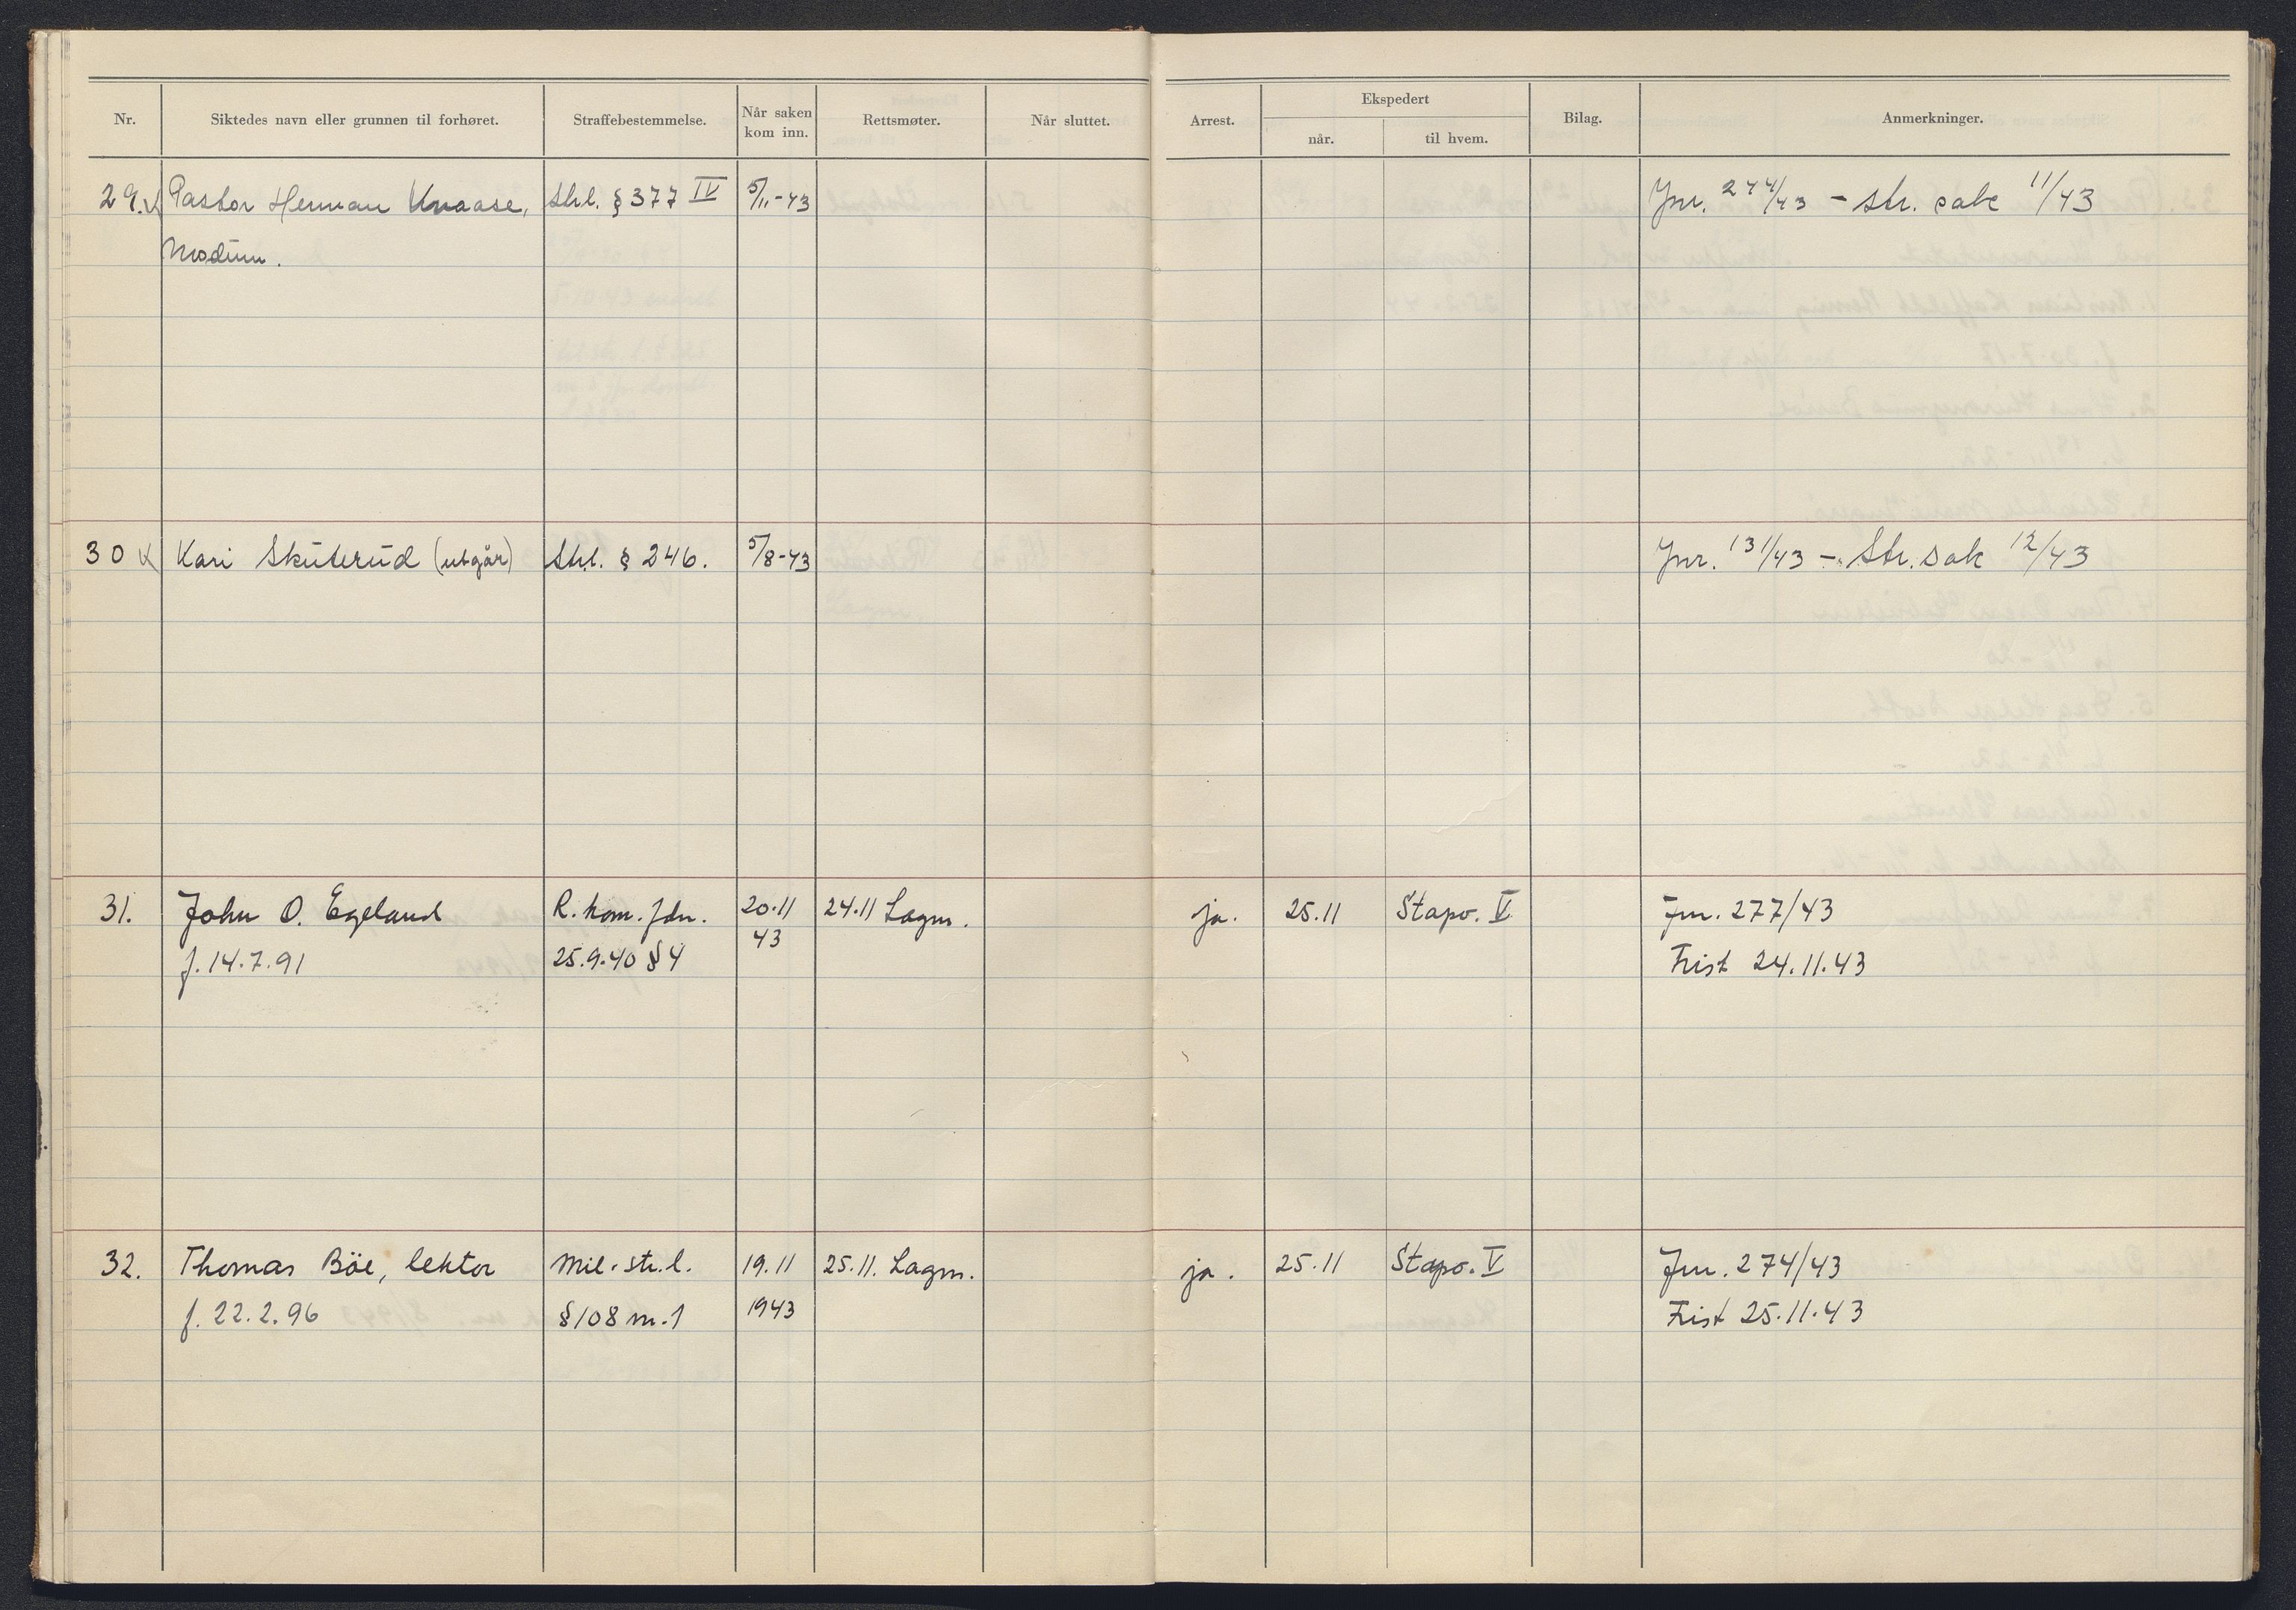 Nr. Siktedes navn eller grunnen til forhøret. Straffebestemmelse. Når saken kom inn. Rettsmøter. Når sluttet. Arrest. Ekspedert når. til hvem. Bilag. Anmerkninger.
29. Pastor Herman Knaase, Strl. § 377 IV 5/11-43 Jnr. 244/43 - str. sake 11/43
Modum.
30 Kari Skuterud (utgår) Strl. § 246. 5/8-43 Jnr. 131/43 - Str. sak 12/43
31. John O. Egeland R. kom. fdn. 20.11 24.11 Lagm. ja. 25.11 Stapo. V Jnr. 277/43
43
f. 14.7.91 25.9.40 § 4 Frist 24.11.43
32. Thomas Böe, lektor Mil. str. l. 19.11 25.11. Lagm. ja. 25.11 Stapo. V Jnr. 274/43
f. 22.2.96 § 108 nr. 1 1943 Frist 25.11.43